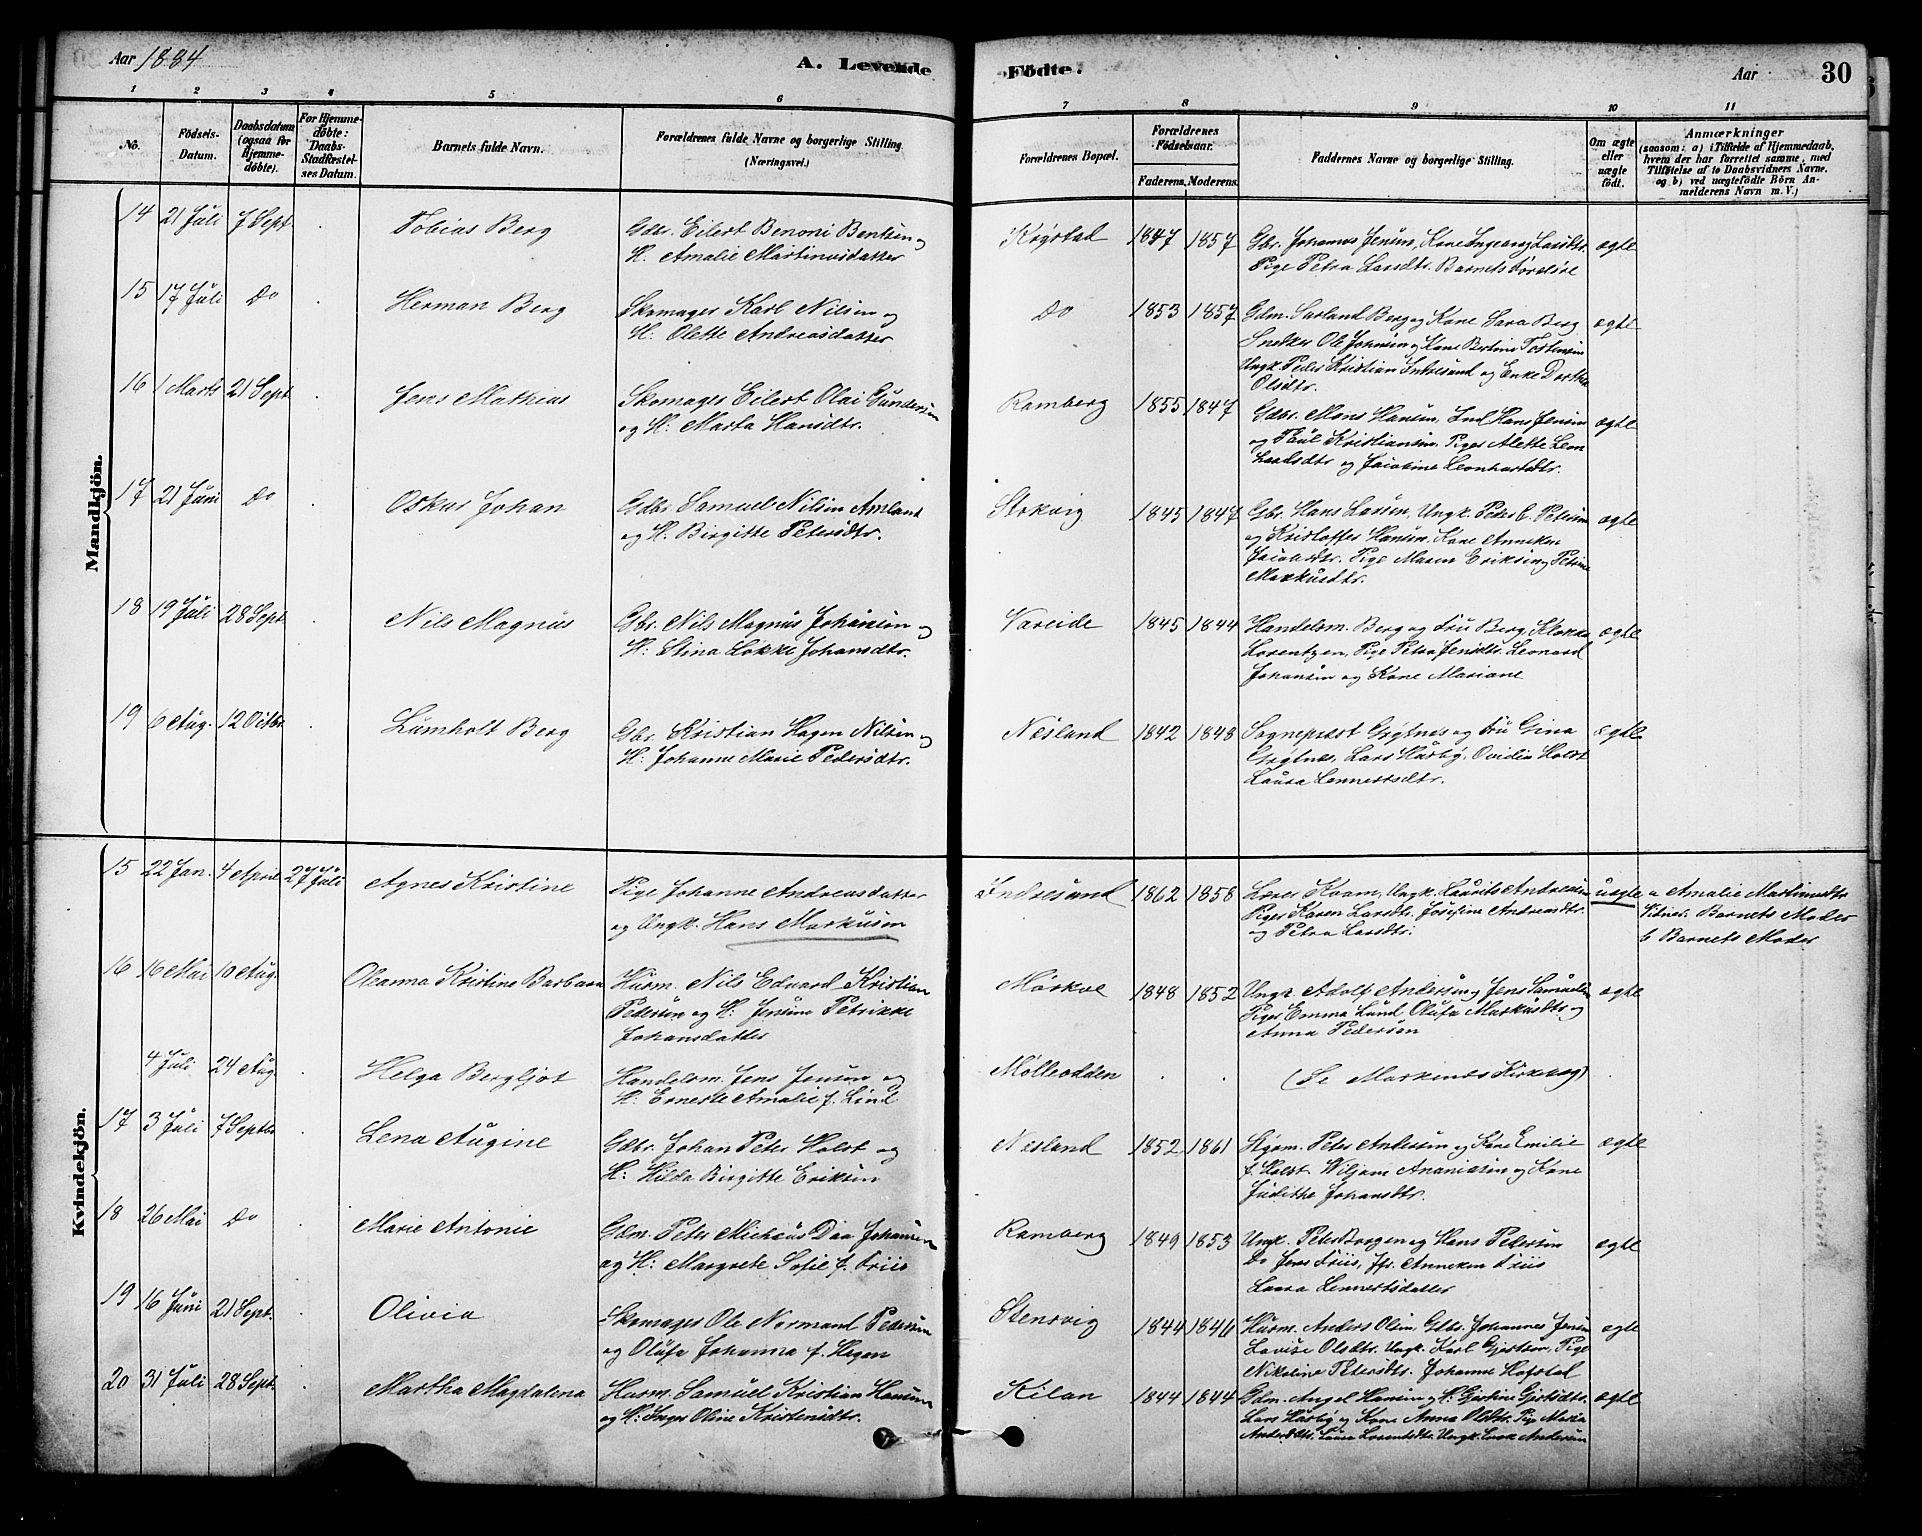 Aar 1884
A. Levende
Födte.
Aar
30
1 2 3 4 5 6 7 8 9 10 11
No.
Födsels-Datum.
Daabsdatum (ogsaa for Hjemme-döbte).
For Hjemme-döbte: Daabs-Stadfæstel-ses Datum.
Barnets fulde Navn.
Forældrenes fulde Navne og borgerlige Stilling (Næringsvei.)
Forældrenes Bopæl.
Forældrenes Födselsaar.
Faderens. Moderens.
Faddernes Navne og borgerlige Stilling.
Om ægte eller uægte födt.
Anmærkninger
(saasom: a) i Tilfælde af Hjemmedaab,
hvem der har forrettet samme, med
Tilföielse af to Daabsvidners Navne.
og b) ved uægtefödte Börn An-
melderens Navn m. V.)
Mandkjön.
14 21 Juli 7 Sept. Tobias Berg
Gdbr. Eilert Benoni Bentsen og
H. Amalie Martinusdatter
Krystad 1847 1857
Gbr. Johannes Jensen, Kone Ingeborg Larsdtr.
Pige Petra Larsdtr. Barnets Forældre
ægte
15 17 Juli Do Herman Berg
Skomager Karl Nilsen og
H. Olette Andreasdatter
Do 1853 1857
Gdm. Berg og Kone Sara Berg
Snedker Ole Johnsen og Kone Bertine
Ungk. Peder Kristian Indresund og Enke Dorthe
Olsdtr.
ægte
16 1 Marts 21 Sept. Jens Mathias
Skomager Eilert Olai Gundersen
og H. Marta Hansdtr.
Ramberg 1855 1847
Gdbr. Mons Hansen, Hans Jensen
og Paul Kristiansen, Piger Alette Leon
og Jacobine Leonhartsdtr.
ægte
17 21 Juni Do Oskar Johan
Gdbr Samuel Nilsen Amland
og H. Birgitte Petersdtr.
Strkvig 1845 1847
Gbr. Hans Larsen, Ungk. Peder C. Petersen
og Kristoffer Hansen, Kone Anneken
Jacobsdtr. Pige Maren Eriksen og Petrine
Markusdtr.
ægte
18 19 Juli 28 Sept. Nils Magnus
Gbr. Nils Magnus Johansen og
H. Stina Lokke Johansdtr.
Vareide 1845 1844
Handelsm. Berg og Fru Berg, Klokker
Lorentzen, Pige Petra Jensdtr. Leonard
Johansen og Kone Mariane
ægte
19 6 Aug. 12 Octbr. Lumholt Berg
Gbr. Kristian Hagen Nilsen og
H. Johanne Marie Pedersdtr.
Næsland 1842 1848
Sognepræst Grytnes og Fru Gina
Grytnes, Lars Husby, Ovidia Holst
Laura Lennertsdtr.
ægte
Kvindekjön.
15 22 Jan. 4 April 27 Juli Agnes Kristine
Pige Johanne Andreasdatter
og Ungk. Hans Markusen
Indresund 1862 1858
Lærer Kvam, Ungk. Laurits Andreasen
Piger Karen Larsdtr. Josefine Andreasdtr.
og Petra Larsdtr.
uægte
a Amalie Martinusdtr
Vidner: Barnets Moder
b Barnets Moder
16 16 Mai 10 Aug. Oleanna Kristine Barbara
Husm. Nils Eduard Kristian
Pedersen og H. Jensine Petrikke
Johansdatter
Mørkve 1848 1852
Ungk. Adolf Andersen og Jens Samuelsen
Piger Emma Lund, Olufa Markusdtr og
Anna Pedersen
ægte
4 Juli 24 Aug. Helga Bergljot
Handelsm. Jens Jensen og
H. Erneste Amalie f. Lind
Mølleodden
(Se Moskenes Kirkebog)
17 3 Juli 7 Septbr Lena Augine
Gdbr. Johan Peter Holst og
H. Hilda Birgitte Eriksen
Næsland 1852 1861
Peter Andersen og Kone Emilie
f. Holst. Wiljam Ananiasen og Kone
Judithe Johansdtr.
ægte
18 26 Mai Do Marie Antonie
Gdm. Peter Michæus Daa Johansen
og H. Margrete Sofie f. Friis
Ramberg 1849 1853
Ungk. Peter Borgen og Hans Pedersen
Do Jens Friis, Jfr. Anneken Friis
Laura Lennertsdatter
ægte
19 16 Juni 21 Sept. Olivia
Skomager Ole Normand Pedersen
og Olufa Johanna f. Hagen
Stensvig 1844 1846
Husm. Anders Olsen, Gdbr. Johannes Jensen
Lovise Olsdtr. Ungk. Karl Gjertsen, Pige
Nikoline Petersdtr. Johanne Hofstad
ægte
20 31 Juli 28 Sept. Martha Magdalena
Husm. Samuel Kristian Hansen
og H. Inger Oline Kristensdtr.
Kilan 1844 1844
Gdm. Angel Hansen og H. Gjertine Gjertsdtr.
Lars Husby og Kone Anna Olsdtr. Pige Maria
Andersdtr. Laura Lorentsdtr. Ungk. Andersen
ægte